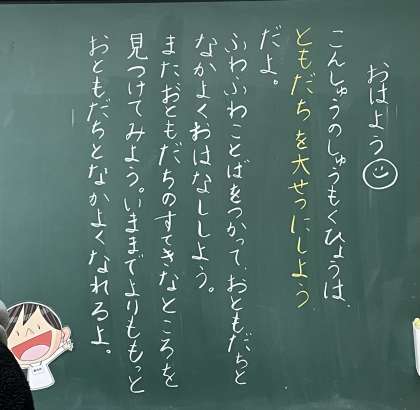 おはよう
こんしゅうのしゅうもくひょうは、
ともだちを大せつにしよう
だよ。
ふわふわことばをつかって、おともだちと
なかよくおはなししよう。
またおともだちのすてきなところを
見つけてみよう。いままでよりももっと
おともだちとなかよくなれるよ。